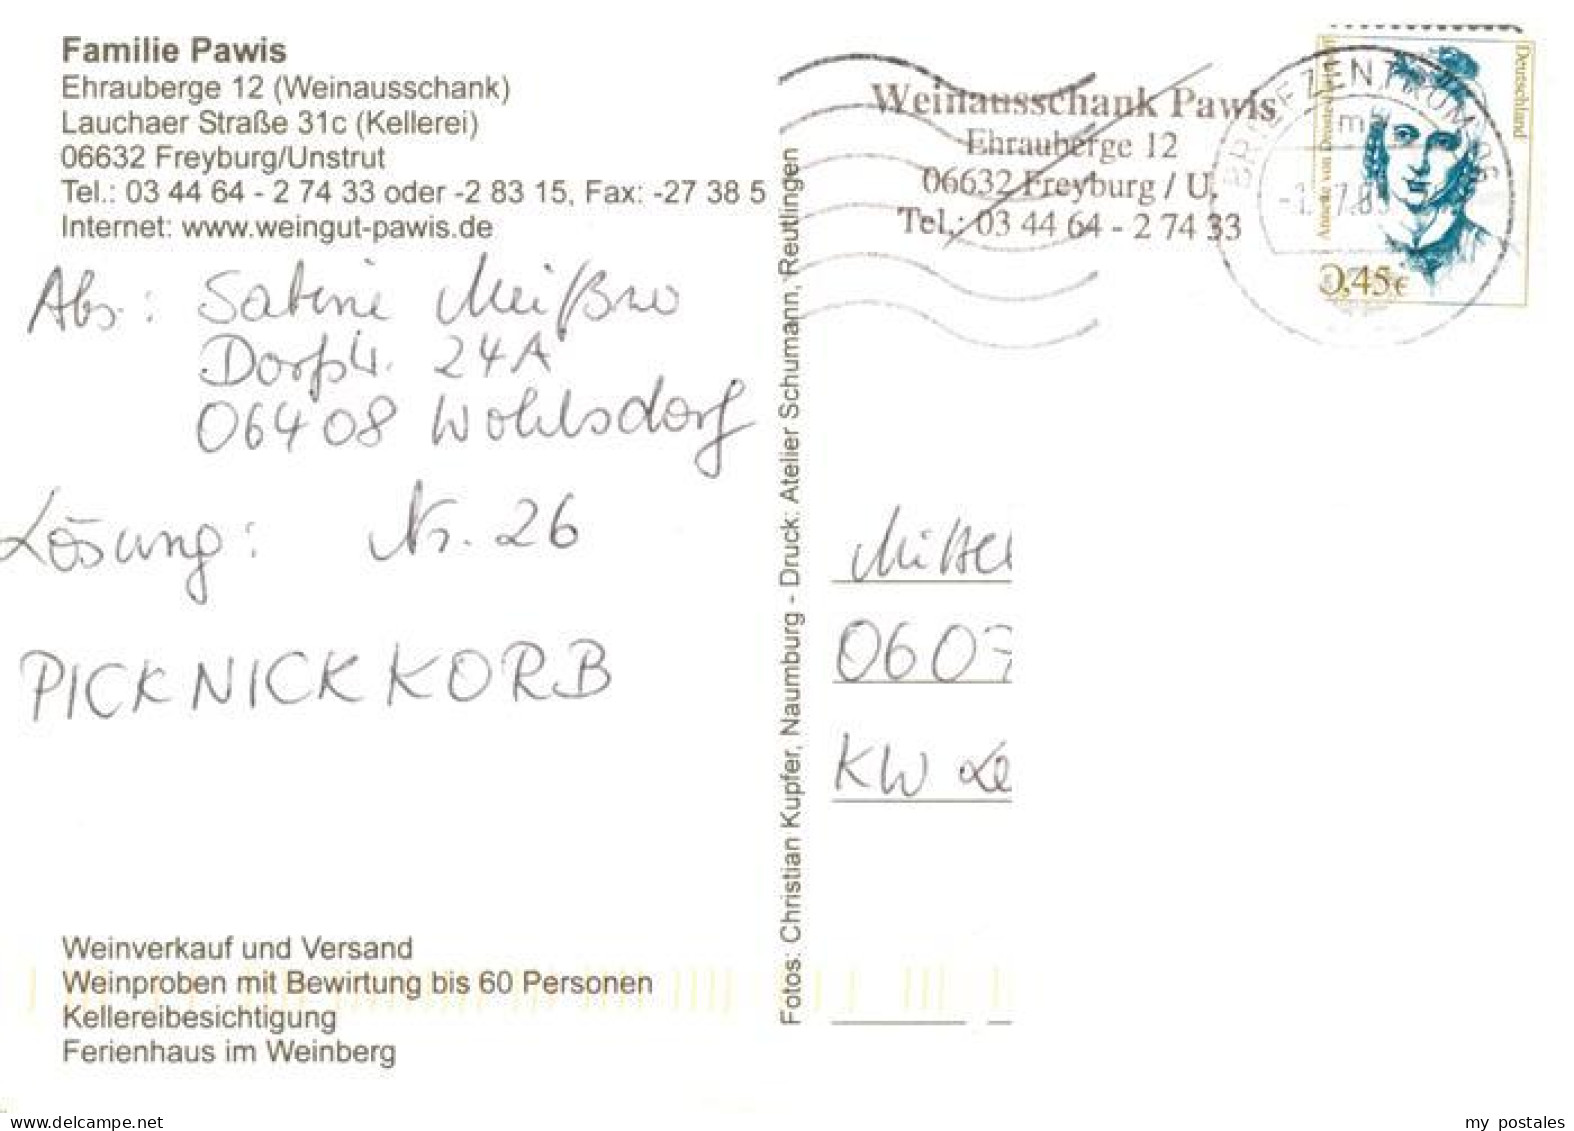 Familie Pawis
Ehrauberge 12 (Weinausschank)
Lauchaer Straße 31c (Kellerei)
06632 Freyburg/Unstrut
Tel.: 03 44 64 - 2 74 33 oder -2 83 15, Fax: -27 38 5
Internet: www.weingut-pawis.de
Abs.: Sabine Meißner
Dorfstr. 24A
06408 Wohlsdorf
Lösung: Nr. 26
PICKNICKKORB
Weinverkauf und Versand
Weinproben mit Bewirtung bis 60 Personen
Kellereibesichtigung
Ferienhaus im Weinberg
Fotos: Christian Kupfer, Naumburg - Druck: Atelier Schumann, Reutlingen
Weinausschank Pawis
Ehrauberge 12
06632 Freyburg / U.
Tel.: 03 44 64 - 2 74 33
BRIEFZENTRUM 06
Deutschland
Annette von
0,45€
Mittel
0607
KW Le
delcampe.net
my postales